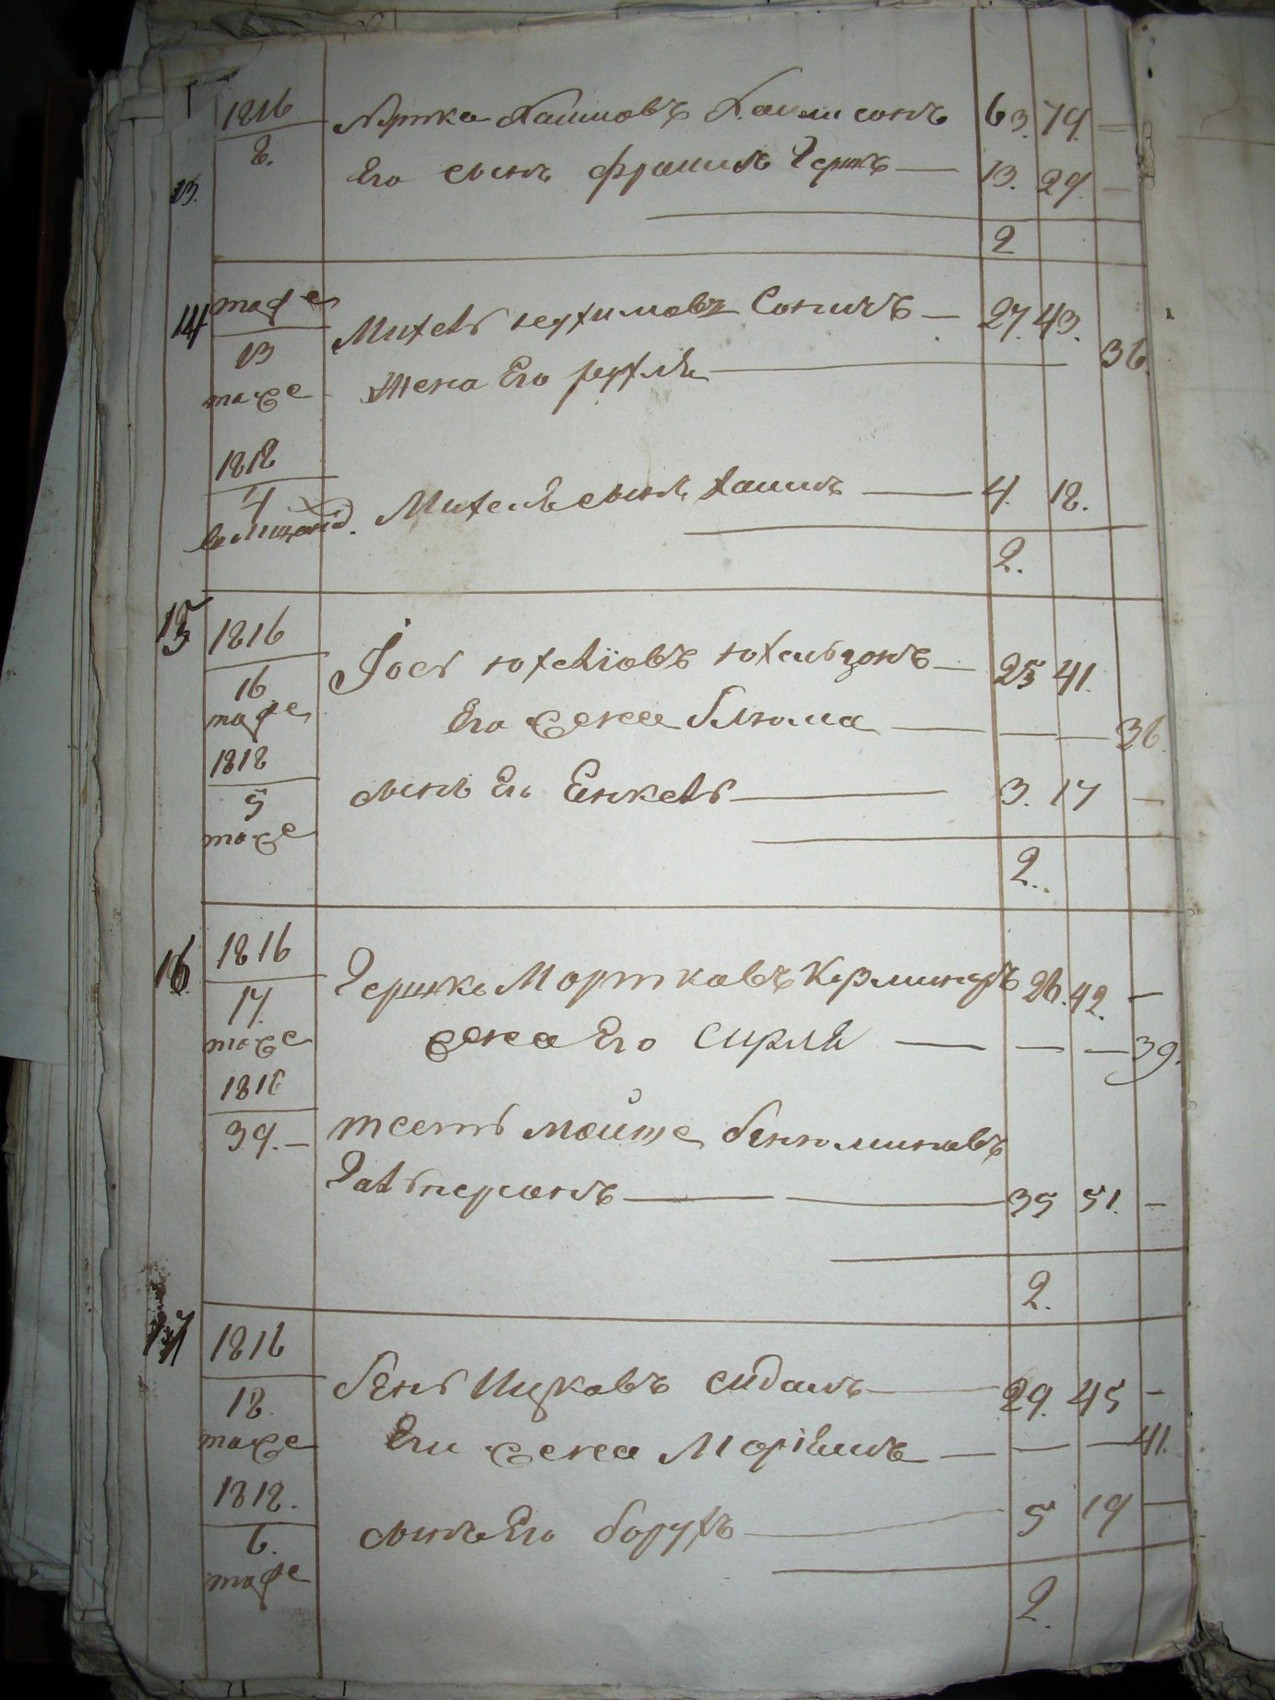 1816 Хаимовъ 63. 74. =
8. Его сынъ Фроимъ Герш 13. 29. —
13.
2
14 тоже Михель Нухимовъ Сонисъ — 27. 43.
13 Жена Его рухля — 36.
тоже
1818
4 Михеля сынъ Хаимъ — 4. 18.
2.
15 1816 Іось Юхелїовъ Юхельзонъ — 25 41.
16 Его жена блюма — — — 36.
тоже
1818 сынъ Его Енкель — 3. 17 —
5
тоже
2.
16 1816 Гершко Мортковъ 26. 42. —
17. жена Его Сирля — — — 39.
тоже
1816
39. — тесть Мойше бенюминовъ
Гальперинъ — 35 51. —
2.
17 1816 бень Ицковъ сидаль — 29. 45 —
18. Его жена Моріемъ — — — 41.
тоже
1818. сынъ Его борухъ — 5 19 —
6.
тоже
2.